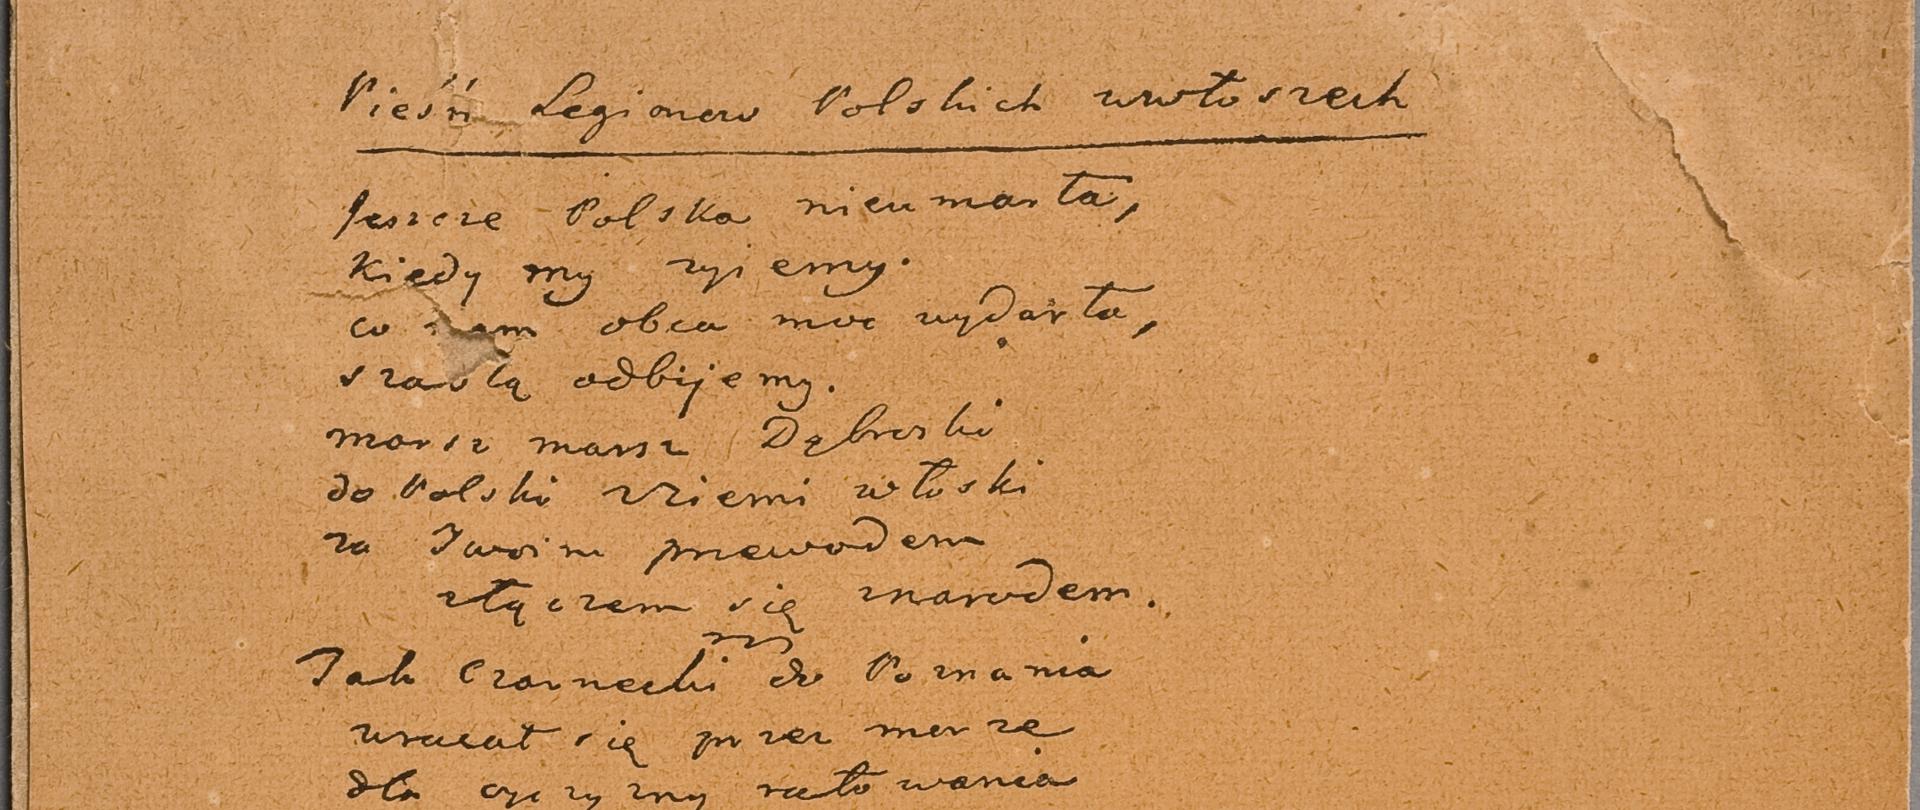 Pieśń Legionow Polskich wewłoszech
Jeszcze Polska nieumarła,
Kiedy my zyiemy.
co nam obca moc wydarła,
szablą odbijemy.
marsz marsz Dąbroski
do Polski zziemi włoski
za Twoim przewodem
złączem się znarodem.
Jak Czarnecki do Poznania
wracał się przez morze
dla oyczyzny ratowania